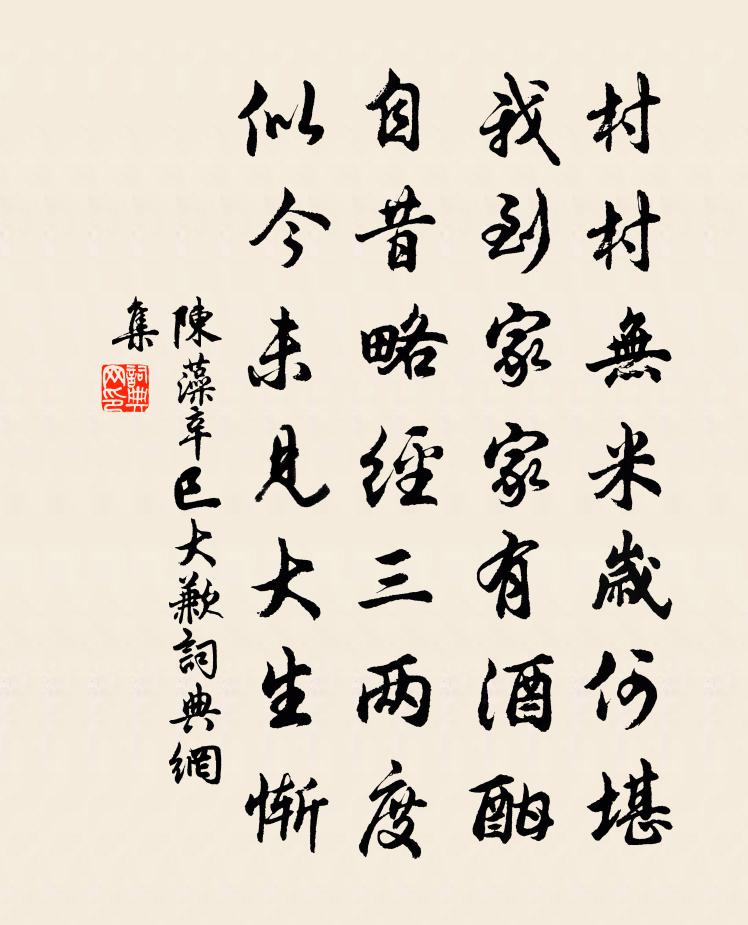 村村無米歲何堪
我到家家有酒酣
自昔略經三两度
似今未見大生慚
陳藻辛巳大歉詞典網
集
詞典
网印